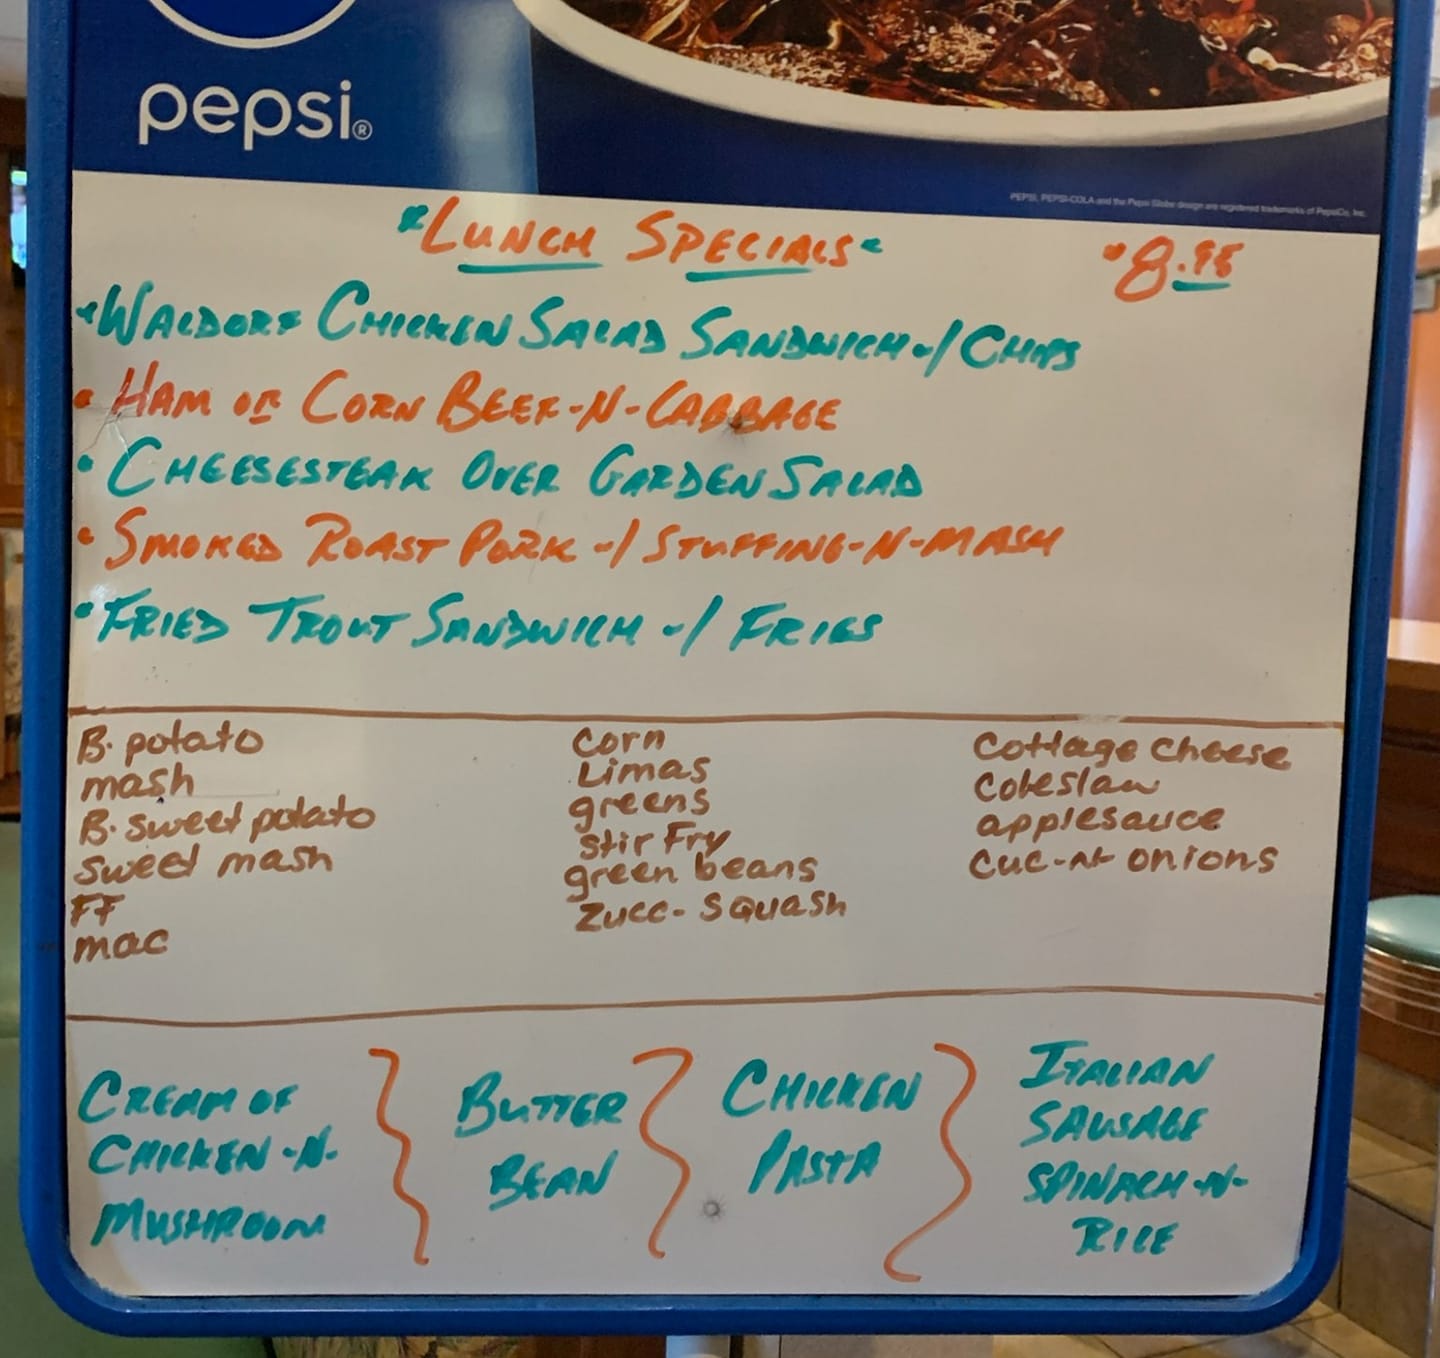 pepsi®
PEPSI, PEPSI-COLA and the Pepsi Globe design are registered trademarks of PepsiCo, Inc.
"LUNCH SPECIALS" "8.95
•WALDORF CHICKEN SALAD SANDWICH -/ CHIPS
• HAM OR CORN BEEF-N-CABBAGE
• CHEESESTEAK OVER GARDEN SALAD
• SMOKED ROAST PORK -/ STUFFING-N-MASH
• FRIED TROUT SANDWICH -/ FRIES
B. potato
mash
B. sweet potato
sweet mash
FF
mac
Corn
Limas
greens
stir Fry
green beans
Zucc- Squash
Cottage cheese
Coleslaw
applesauce
cuc-n- onions
CREAM OF
CHICKEN -N-
MUSHROOM
BUTTER
BEAN
CHICKEN
PASTA
ITALIAN
SAUSAGE
SPINACH-N-
RICE